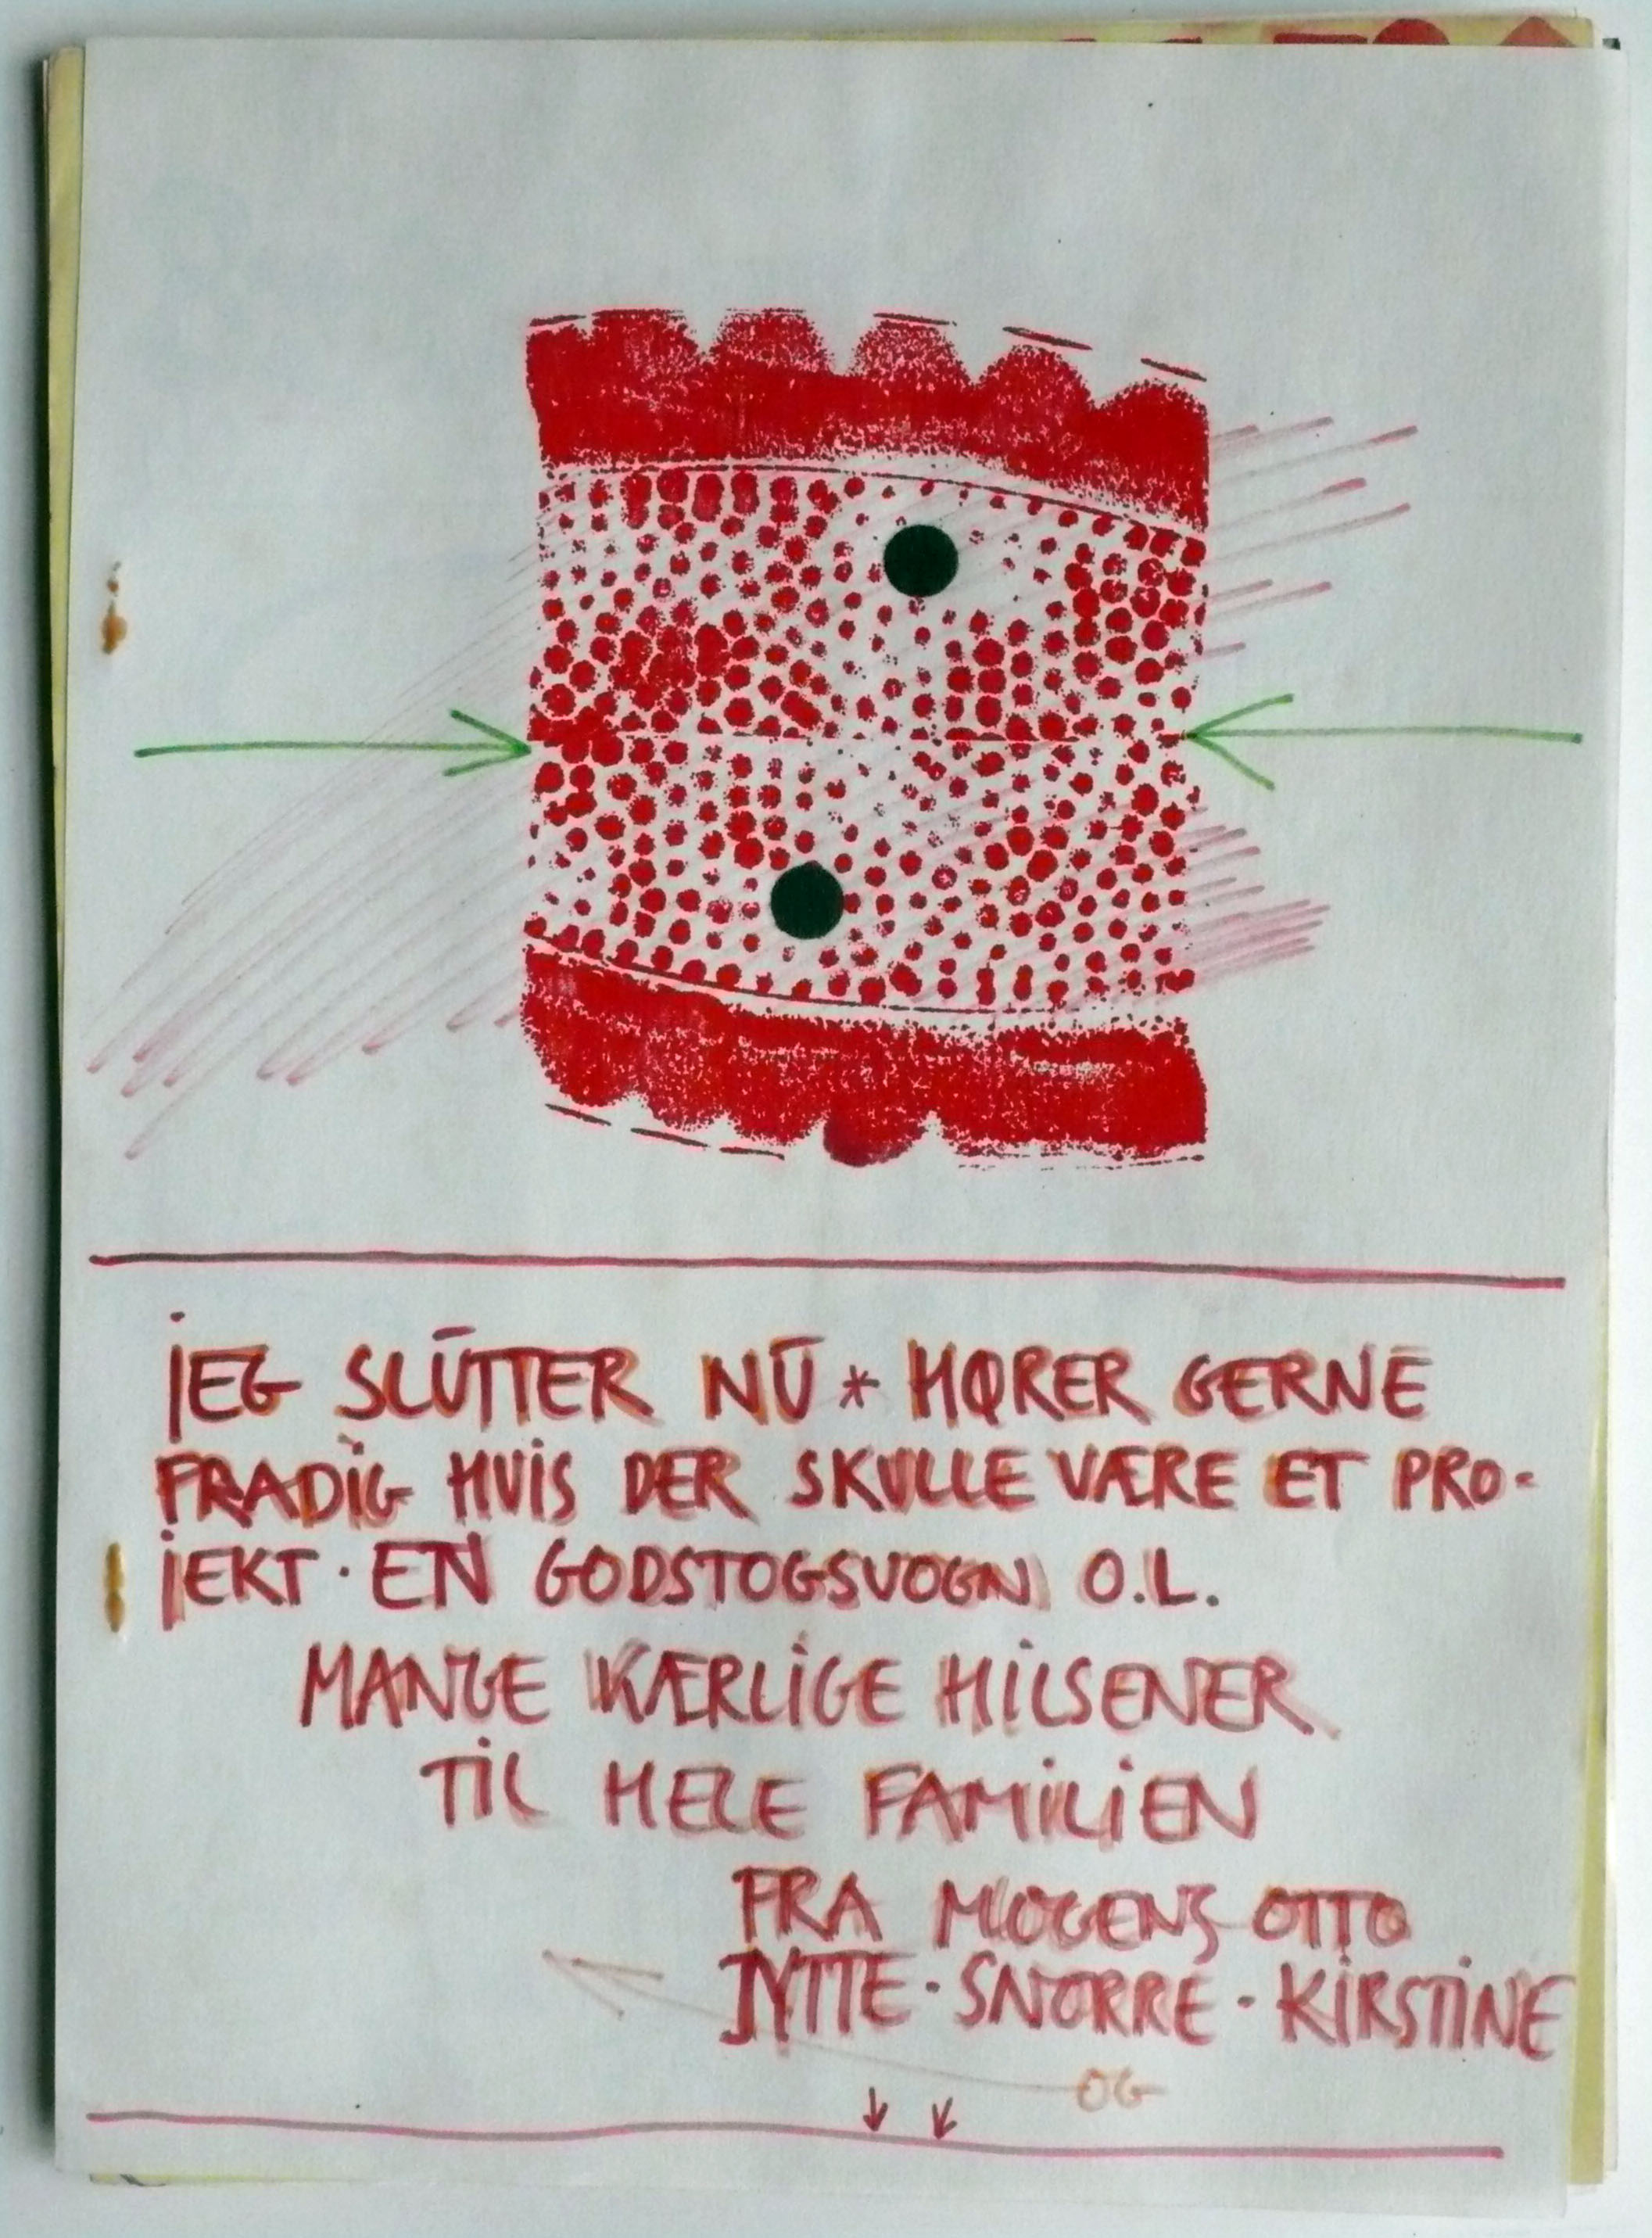 jEG SLŪTTER NŪ * HØRER GERNE
FRA DiG HViS DER SKULLE VÆRE ET PRO-
jEKT · EN GODSTOGSVOGN O.L.
MANGE KÆRLiGE HiLSENER
TiL HELE FAMiLiEN
FRA MOGENS OTTO
JYTTE · SNORRE · KiRSTiNE
OG